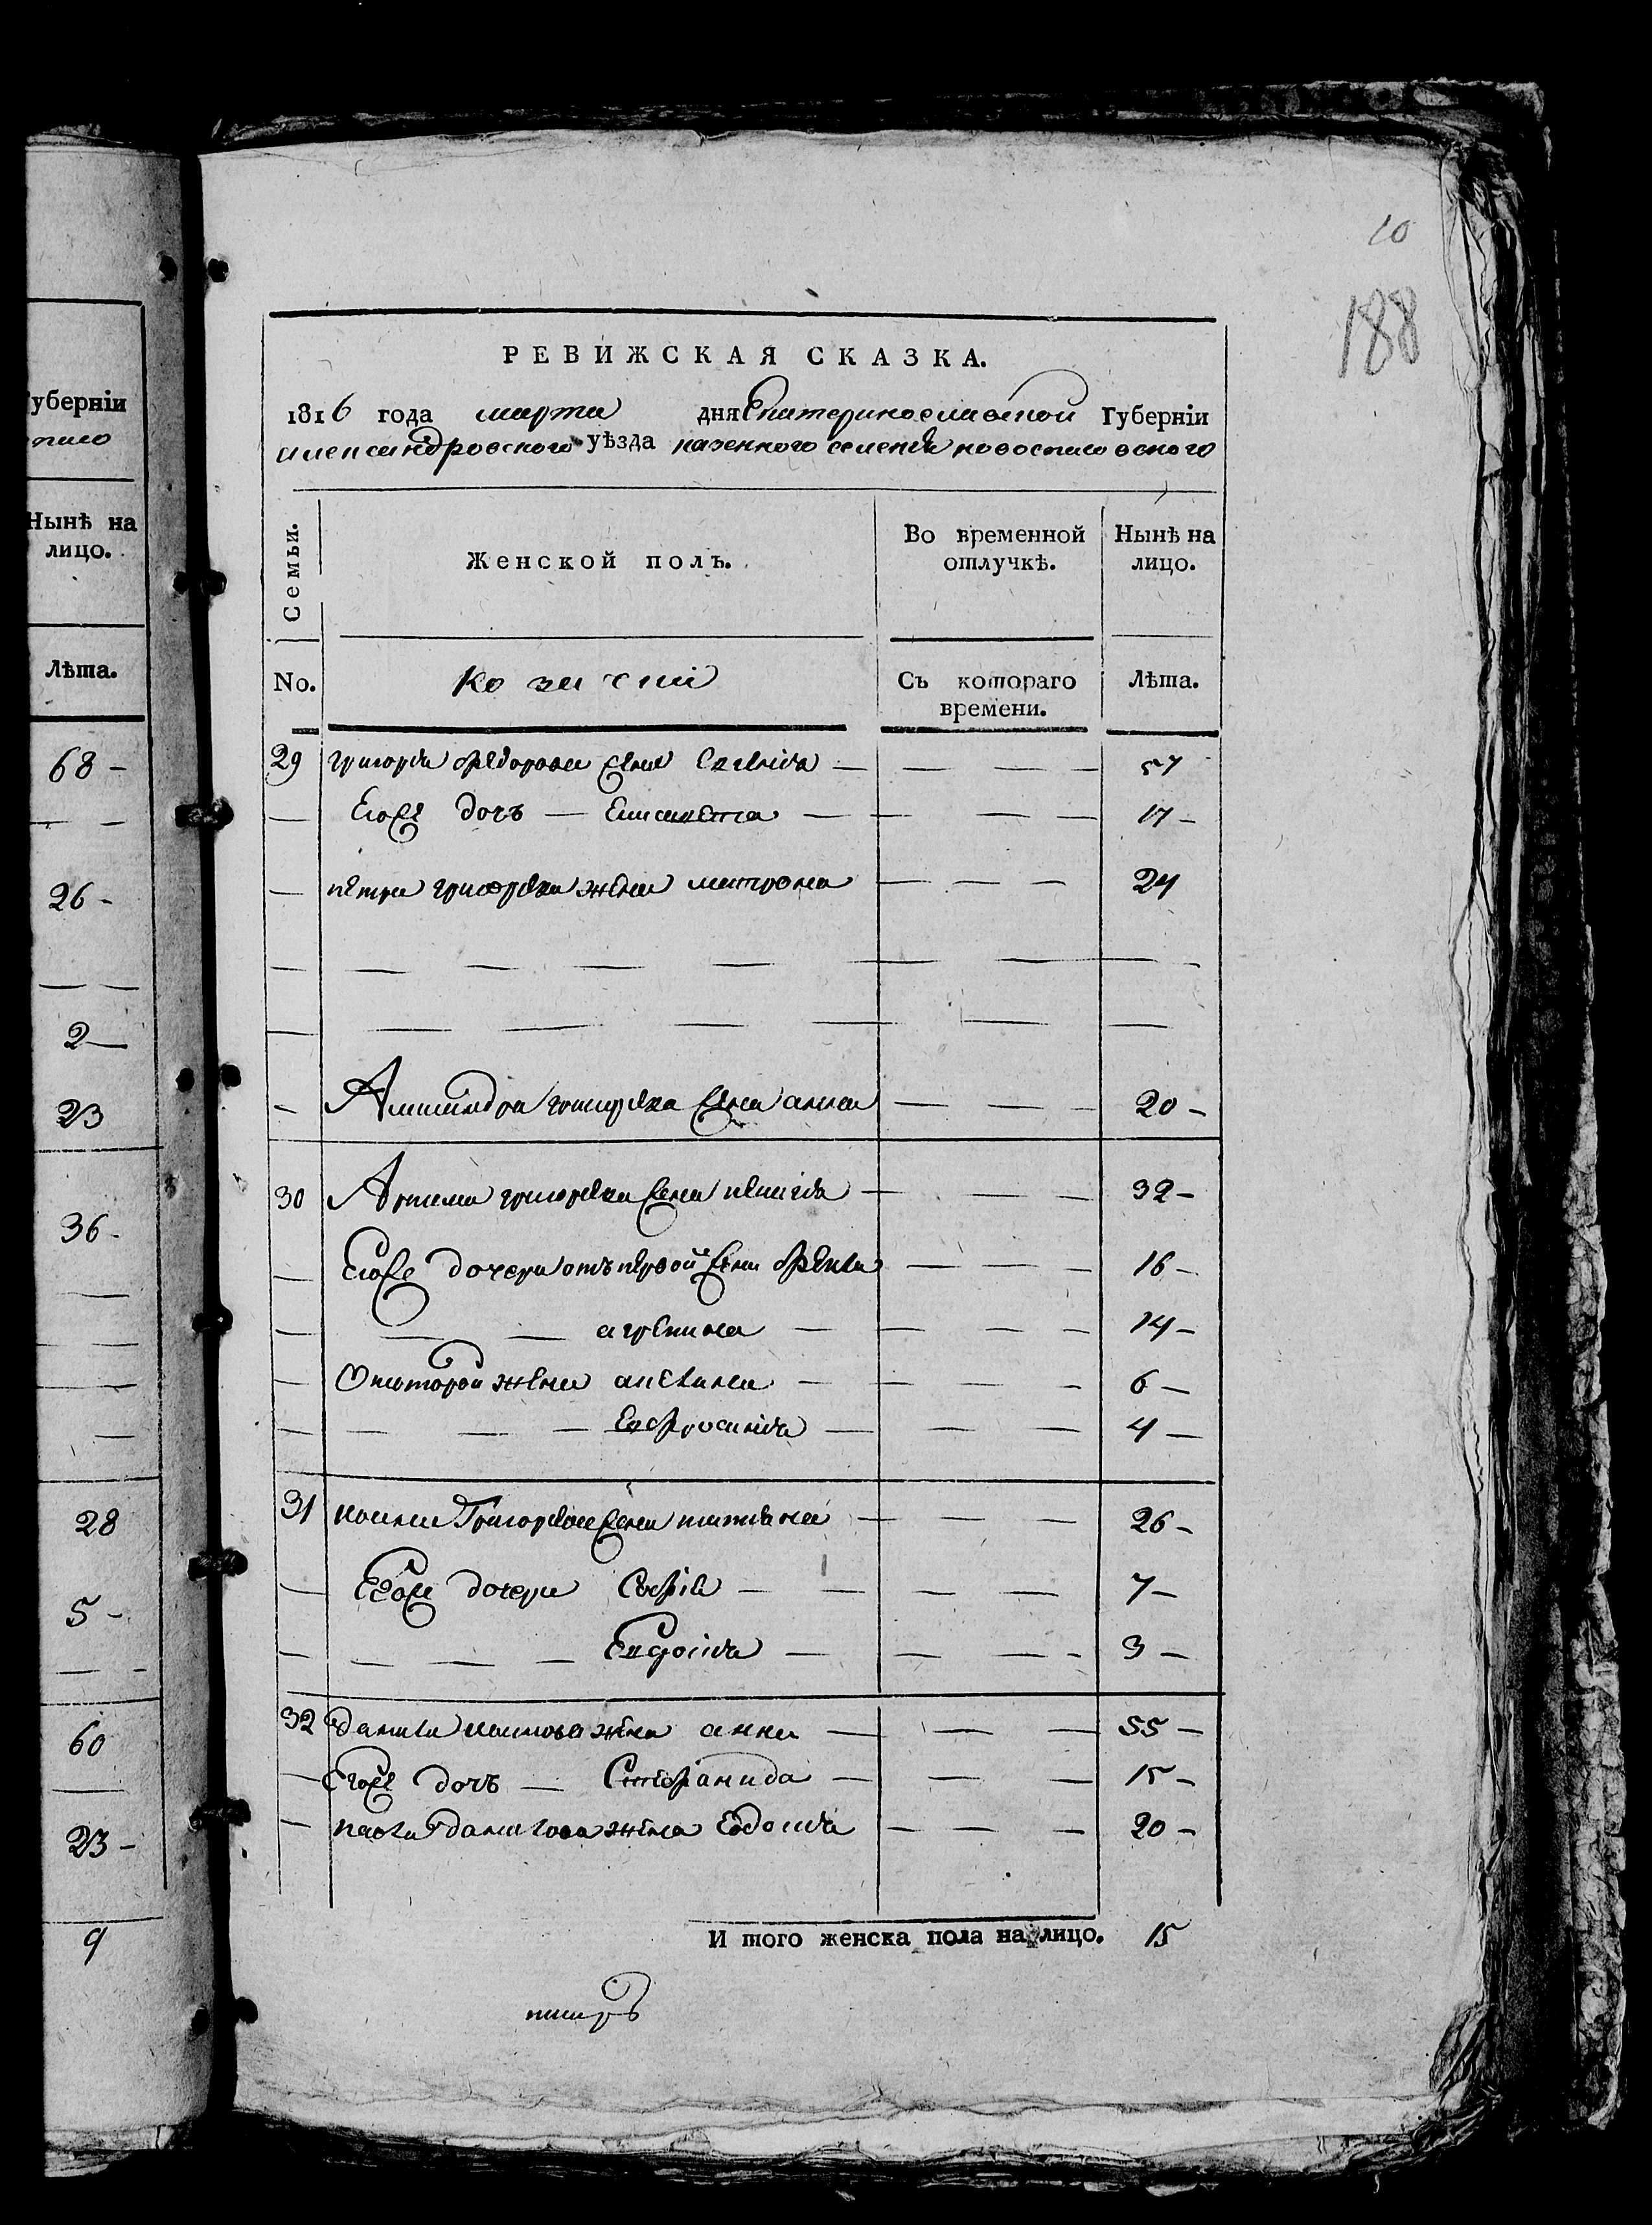 уберніи
Нынѣ на
лицо.
Лѣта.
68 —
26 -
2 —
23
36 -
28
5 -
60
23 -
9
10
188
РЕВИЖСКАЯ СКАЗКА.
1816 года марта дня Екатеринославской Губерніи
александровского уѣзда казенного селенія новоспасовского
Семьи.
Женской полъ.
Во временной отлучкѣ.
Нынѣ на лицо.
No.
Козачки
Съ котораго времени.
Лѣта.
29 григорія федорова жена Евгенія — 57
Егоже дочъ — Елисавета — 17 -
петра григорева жена матрона 24
григорева жена анна 20 -
30 Артема григорева жена пелагія — 32 -
Егоже дочери отъ первой жены фекла 16 -
агрепина — 14 -
От второй жены — 6 —
Евфросинія — 4 —
31 Григорева жена татіана — 26 -
Егоже дочери Софія — 7 —
Евдокія — 3 —
32 данила жена анна — 55 —
Егоже дочъ — Стефанида — 15 -
павла данилова жена Евдокія 20 -
И того женска пола на лицо. 15